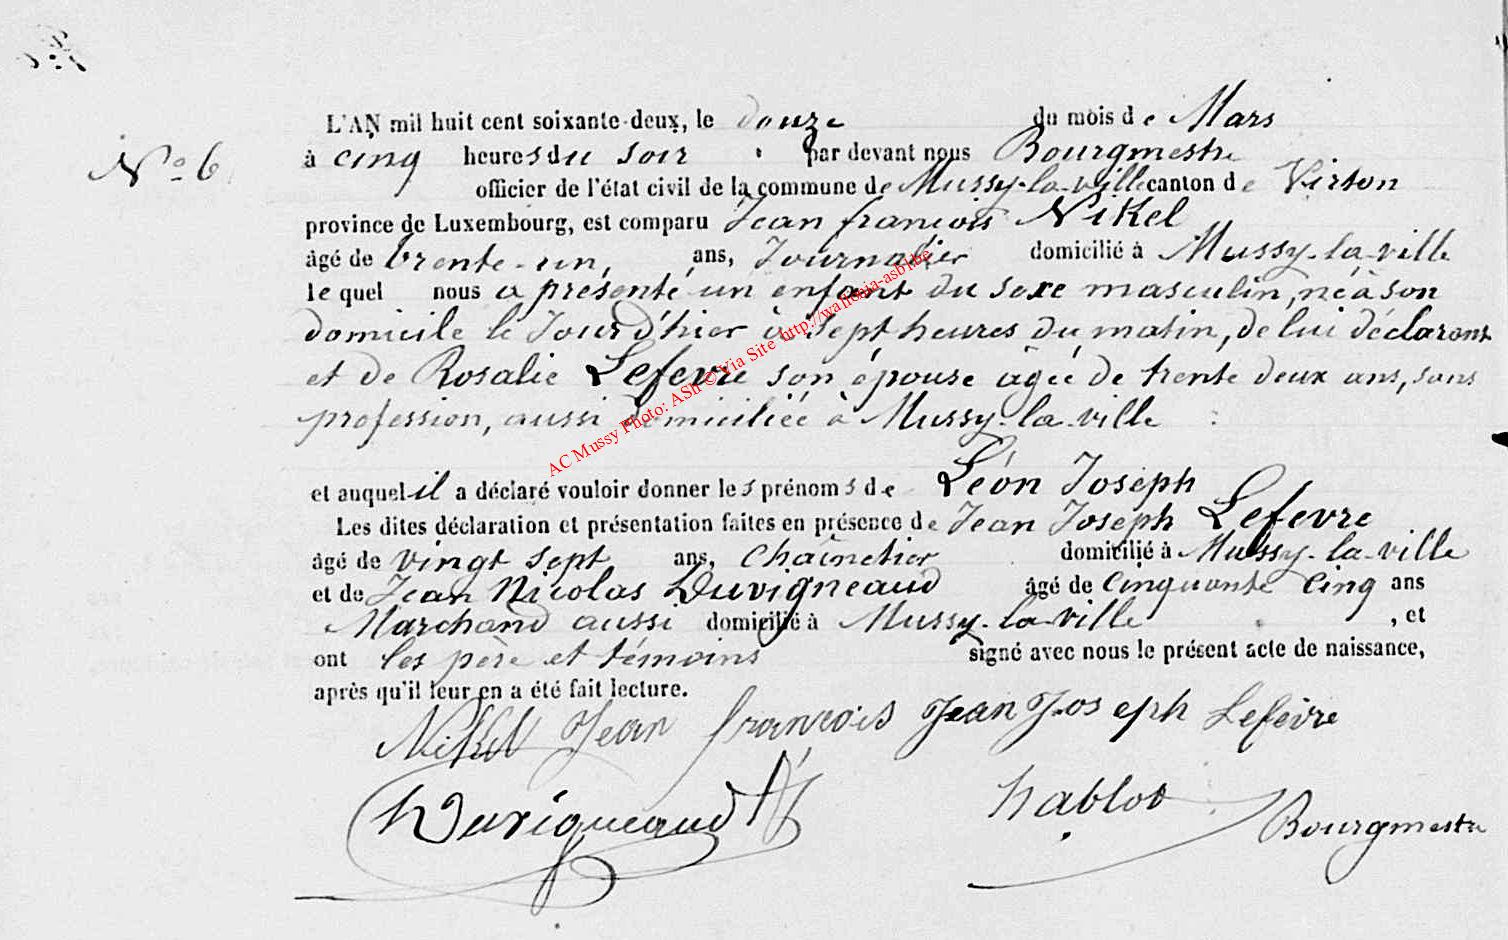 L'AN mil huit cent soixante-deux, le douze du mois de Mars
N° 6
à cinq heures du soir par devant nous Bourgmestre
officier de l'état civil de la commune de Mussy-la-ville canton de Virton
province de Luxembourg, est comparu Jean françois Nikel
âgé de trente-un, ans, Journalier domicilié à Mussy-la-ville
lequel nous a présenté un enfant du sexe masculin, né à son
domicile le Jour d'hier à sept heures du matin, de lui déclarant
et de Rosalie Lefevre son épouse âgée de trente deux ans, sans
profession, aussi domiciliée à Mussy-la-ville
AC Mussy Photo: ASh © Via Site http://wallonia-asbl.be
et auquel il a déclaré vouloir donner les prénoms de Léon Joseph
Les dites déclaration et présentation faites en présence de Jean Joseph Lefevre
âgé de vingt sept ans, chaînetier domicilié à Mussy-la-ville
et de Jean Nicolas Duvigneaud âgé de cinquante cinq ans
Marchand aussi domicilié à Mussy-la-ville , et
ont les père et témoins signé avec nous le présent acte de naissance,
après qu'il leur en a été fait lecture.
Nikel Jean françois Jean Joseph Lefèvre
Duvigneaud hablot Bourgmestre